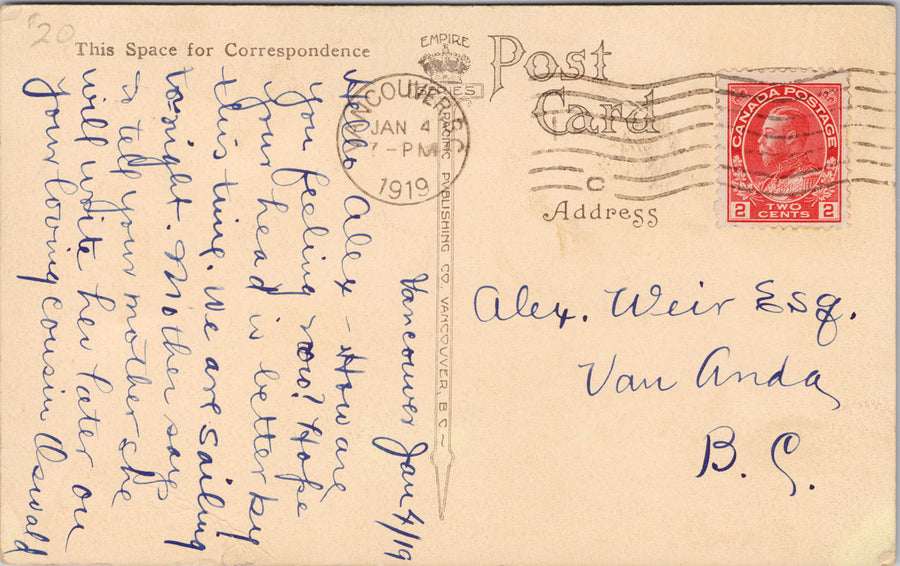 '20
This Space for Correspondence
EMPIRE
SERIES
Post
Card
VANCOUVER B.C.
JAN 4
7 - PM
1919
C
Address
CANADA POSTAGE
2 TWO CENTS 2
PACIFIC PUBLISHING CO. VANCOUVER, B C
Vancouver Jan 4/19
Hello Alex - How are
you feeling now? Hope
your head is better by
this time. We are sailing
to-night. Mother says
to tell your mother she
will write her later on
Your loving cousin Oswald
Alex. Weir Esq.
Van Anda
B. C.